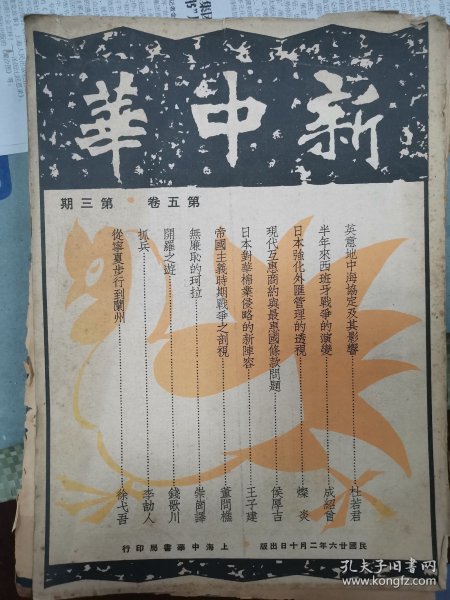 新中華
第五卷 第三期
英意地中海協定及其影響………杜若君
半年來西班牙戰爭的演變………成紹曾
日本強化外匯管理的透視………燦炎
現代互惠商約與最惠國條款問題………侯厚吉
日本對華棉業侵略的新陣容………王子建
帝國主義時期戰爭之剖視………董問樵
無廉恥的珂拉………崇崗譯
開羅之遊………錢歌川
抓兵………李劼人
從寧夏步行到蘭州………徐弋吾
民國廿六年二月十日出版
上海中華書局印行
孔夫子旧书网
book.kongfz.com